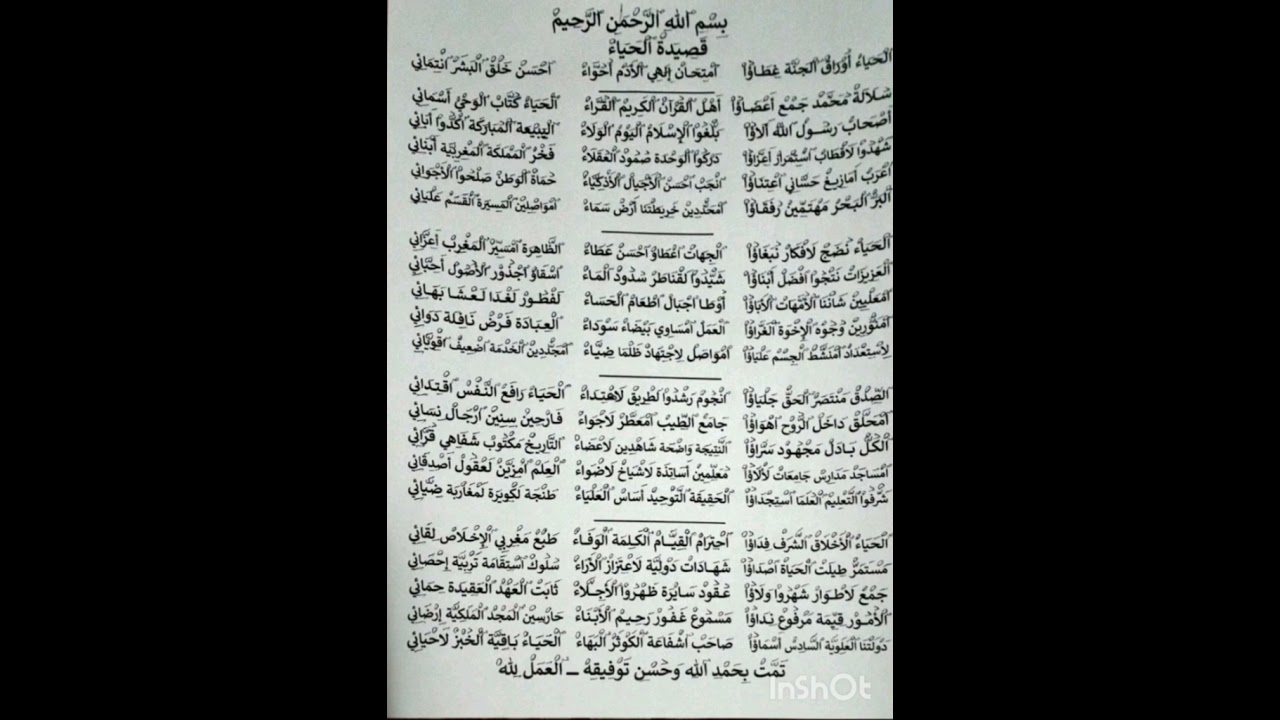 بِسْمِ اللهِ الرَّحْمٰنِ الرَّحِيمْ
قَصِيدَةُ الْحَيَاءْ
الْحَيَاءْ أَوْرَاقْ الْجَنَّة غِطَاؤُاْ امْتِحَانْ إِلَهِي الْأَدَمْ أُحَوَّاءْ احْسَنْ خَلْقْ الْبَشَرْ انْتِمَانِي
سُلَالَةْ مُحَمَّدْ جَمْعْ أَعْضَاؤُاْ أَهْلْ الْقُرْآنْ الْكَرِيمْ الْقُرَّاءْ الْحَيَاءْ كُتَّابْ الْوَحْيْ أَسْمَانِي
أَصْحَابْ رَسُولْ اللهْ آلَاؤُاْ بَلْغُواْ الْإِسْلَامْ الْيَوْمْ الْوَلَاءْ الْبَيْعَة الْمُبَارَكَة أَكْدُواْ آبَانِي
شَهْدُواْ لَاقْطَابْ اسْتِمْرَارْ اعْزَاؤُاْ دَرْكُواْ الْوَحْدَة صُمُودْ الْعُقَلَاءْ فَخْرْ الْمَمْلَكَة الْمَغْرِبِيَّة أَبْنَانِي
أَعْرَبْ أَمَازِيغْ حَسَّانِي اعْتِنَاؤُاْ انْجَبْ احْسَنْ الْأَجْيَالْ الْأَذْكِيَاءْ حُمَاةْ الْوَطَنْ صَلْحُواْ الْأَجْوَانِي
الْبَرْ الْبَحْرْ مُهْتَمِّينْ رُفَقَاؤُاْ امْحَدِّدِينْ خَرِيطَتْنَا أَرْضْ سَمَاءْ امْوَاصْلِينْ الْمَسِيرَة الْقَسَمْ عَلْيَانِي
الْحَيَاءْ نُضْجْ لَافْكَارْ نُبَغَاؤُاْ الْجِهَاتْ اعْطَاوْ احْسَنْ عَطَاءْ الظَّاهِرَة امْسَيَّرْ الْمَغْرِبْ اعْزَانِي
الْعَزِيزَاتْ نَتْجُواْ افْضَلْ أَبْنَاؤُاْ شَيْدُواْ لَقْنَاطَرْ سُدُودْ الْمَاءْ اسْقَاوْ اجْدُورْ الْأُصُولْ أَحْبَانِي
امْعَلِّيِينْ شَانْنَا الْأُمَّهَاتْ الْآبَاؤُاْ أَوْطَا اجْبَالْ اطْعَامْ الْحَسَاءْ لَفْطُورْ لَغْدَا لَعْشَا بَهَانِي
امْنَوّْرِينْ وُجُوهْ الْإِخْوَة الْغَرَّاؤُاْ الْعَمَلْ امْسَاوِي بَيْضَاءْ سَوْدَاءْ الْعِبَادَة فَرْضْ نَافِلَة دَوَانِي
لِاسْتِعْدَادْ امْنَشَّطْ الْجِسْمْ عَلْيَاؤُاْ امْوَاصَلْ لِاجْتِهَادْ ظَلْمَا ضِيَاءْ امْجَدِّدِينْ الْخَدْمَة اضْعِيفْ اقْوِيَانِي
الصِّدْقْ مَنْتَصَرْ الْحَقّْ جَلْيَاؤُاْ انْجُومْ رَشْدُواْ لَطْرِيقْ لَاهْتِدَاءْ الْحَيَاءْ رَافَعْ النَّفْسْ اقْتِدَانِي
امْحَلَّقْ دَاخَلْ الرُّوحْ اهْوَاؤُاْ جَامَعْ الطِّيبْ امْعَطَّرْ لَاجْوَاءْ فَارْحِينْ سِنِينْ ارْجَالْ نِسَانِي
الْكُلّْ بَادَلْ مَجْهُودْ سَرَّاؤُاْ النَّتِيجَة وَاضْحَة شَاهْدِينْ لَاعْضَاءْ التَّارِيخْ مَكْتُوبْ شَفَاهِي قُرَّانِي
امْسَاجَدْ مَدَارِسْ جَامِعَاتْ لَأْلَاؤُاْ مُعَلِّمِينْ أَسَاتِذَة لَاشْيَاخْ لَاضْوَاءْ الْعِلْمْ امْزَيَّنْ لَعْقُولْ أَصْدِقَانِي
شَرْفُواْ التَّعْلِيمْ الْعُلَمَا اسْتِجْدَاؤُاْ الْحَقِيقَة التَّوْحِيدْ أَسَاسْ الْعَلْيَاءْ طَنْجَة لَكْوِيرَة لَمْغَارْبَة ضَيَّانِي
الْحَيَاءْ الْأَخْلَاقْ الشَّرَفْ فِدَاؤُاْ احْتِرَامْ الْقِيَامْ الْكَلِمَة الْوَفَاءْ طَبْعْ مَغْرِبِي الْإِخْلَاصْ لِقَانِي
مُسْتَمَرّْ طِيلَتْ الْحَيَاةْ أَصْدَاؤُاْ شَهَادَاتْ دَوْلِيَّة لَاعْتِزَازْ الْآرَاءْ سُلُوكْ اسْتِقَامَة تَرْبِيَّة إِحْصَانِي
جَمْعْ لَاطْوَارْ شَهْرُواْ وَلَاؤُاْ عُقُودْ سَايْرَة ظَهْرُواْ الْأَجِلَّاءْ ثَابَتْ الْعَهْدْ الْعَقِيدَة حِمَانِي
الْأُمُورْ قِيمَة مَرْفُوعْ نِدَاؤُاْ مَسْمُوعْ غَفُورْ رَحِيمْ الْأَبْنَاءْ حَارْسِينْ الْمَجْدْ الْمَلَكِيَّة إِرْضَانِي
دَوْلَتْنَا الْعَلَوِيَّة السَّادِسْ أَسْمَاؤُاْ صَاحَبْ اشْفَاعَة الْكَوْثَرْ الْبَهَاءْ الْحَيَاءْ بَاقِيَّة الْخُبْزْ لَاحْيَانِي
تَمَّتْ بِحَمْدِ اللهِ وَحُسْنِ تَوْفِيقِهْ ــ الْعَمَلْ لِلهْ
InShOt